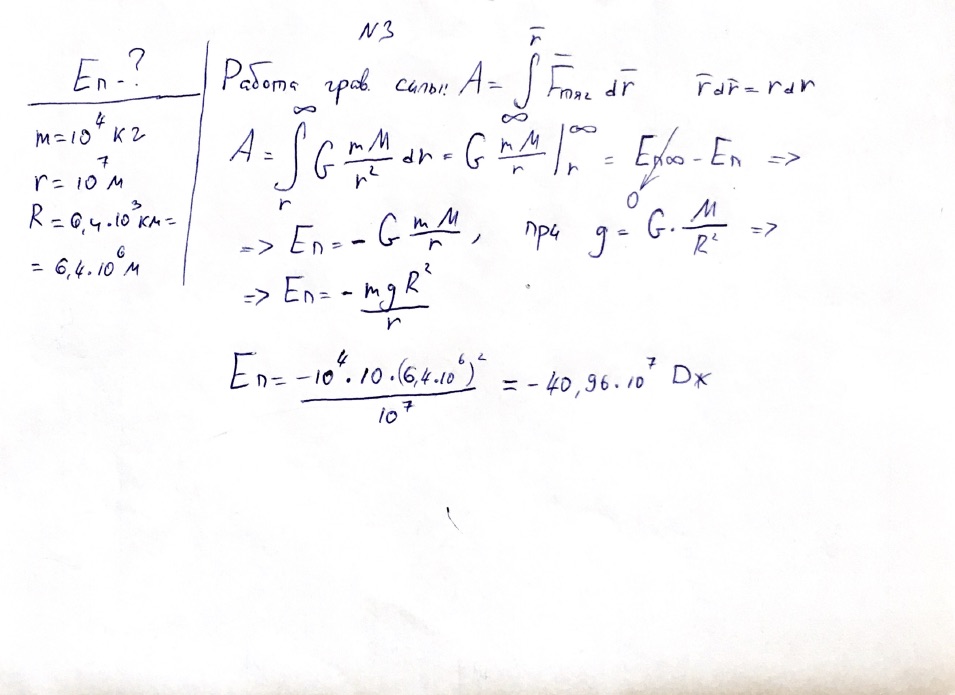 N3
Eп - ?
m = 10⁴ кг
r = 10⁷ м
R = 6,4·10³ км =
= 6,4·10⁶ м
Работа грав. силы: A = ∫_∞^r̄ F̄тяг dr̄ r̄dr̄ = rdr
A = ∫_r^∞ G mM/r² dr = G mM/r |_r^∞ = Eп∞ - Eп =>
0
=> Eп = - G mM/r, при g = G· M/R² =>
=> Eп = - mgR²/r
Eп = -10⁴·10·(6,4·10⁶)²/10⁷ = - 40,96·10⁷ Dж